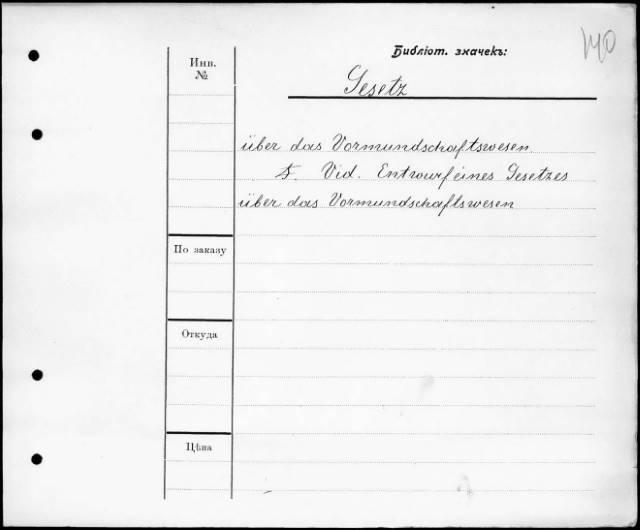 Библіот. значекъ:
Инв.
№
Gesetz
über das Vormundschaftswesen.
Vid. Entwurf eines Gesetzes
über das Vormundschaftswesen
По заказу
Откуда
Цѣна